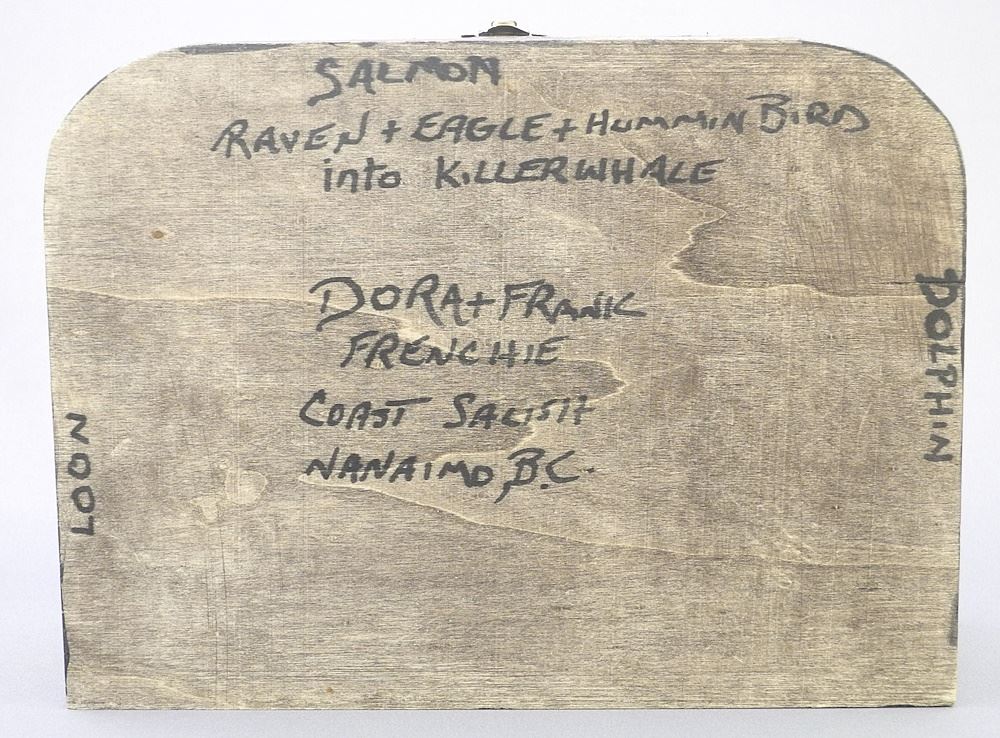 SALMON
RAVEN + EAGLE + HUMMIN BIRD
into KILLERWHALE
DORA + FRANK
FRENCHIE
COAST SALISH
NANAIMO, B.C.
LOON
DOLPHIN